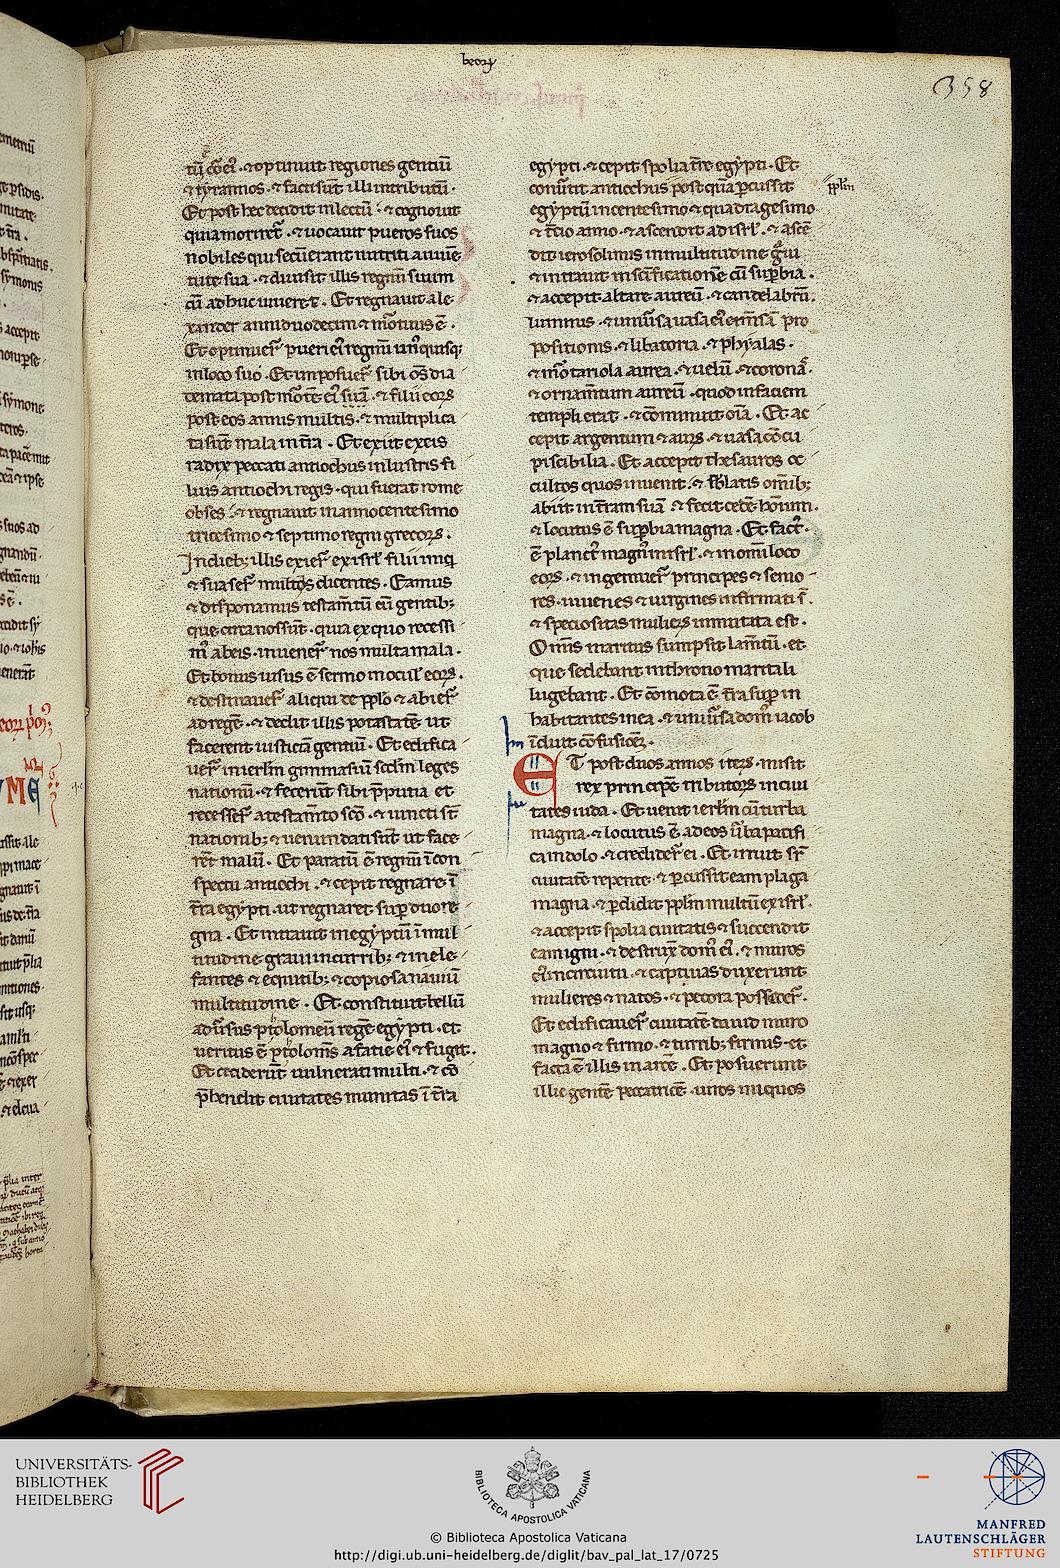 beorꝝ
358
tū cōeiꝰ. ⁊ optinuit regiones gentiū
⁊ tyrannos. ⁊ facti sūt illi in tributū.
Et post hec decidit in lectū. ⁊ cognouit
quia morireṫ. ⁊ uocauit pueros suos
nobiles qui secū erant nutriti a iuuē
tute sua. ⁊ diuisit illis regnū suum
cū adhuc uiueret. Et regnauit ale
xander annis duodecim ⁊ mortuus ē.
Et optinuer̄ pueri eiꝰ regnū unꝰquisqꝫ
in loco suo. Et inposuer̄ sibi om̄s dia
demata post mortē eiꝰ suā. ⁊ filii eoꝝ
post eos annis multis. ⁊ multiplica
ta sūt mala in t̄ra. Et exiit ex eis
radix peccati antiochus inlustris fi
lius antiochi regis. qui fuerat rome
obses. ⁊ regnauit in anno centesimo
tricesimo ⁊ septimo regni grecoꝝ.
In diebꝫ illis exier̄ ex isrl̄ filii iniq̇
⁊ suaser̄ multos dicentes. Eamus
⁊ disponamus testam̄tū cū gentibꝫ
que circa nos sūt. quia ex quo recessi
mꝰ ab eis. inuener̄ nos multa mala.
Et bonus uisus ē sermo in oculꝭ eoꝝ.
⁊ destinauer̄ aliqui de pp̄lo ⁊ abier̄
ad regē. ⁊ dedit illis potastatē ut
facerent iusticiā gentiū. Et edifica
uer̄ in ierlm̄ gimnasiū scd̄m leges
nationū. ⁊ fecerūt sibi p̄putia et
recesser̄ a testam̄to scō. ⁊ iuncti st̄
nationibꝫ ⁊ uenundati sūt ut face
rēt malū. Et paratū ē regnū ī con
spectu antiochi. ⁊ cepit regnare ī
t̄ra egypti. ut regnaret sup̱ duo re
gna. Et intrauit in egyptū ī mul
titudine graui in curribꝫ ⁊ in ele
fantes ⁊ equitibꝫ ⁊ copiosa nauiū
multitudine. Et constituit bellū
aduersus ptolomeū regē egypti. et
ueritus ē ptolomꝰ a facie eiꝰ ⁊ fugit.
Et ceciderūt uulnerati multi. ⁊ cō
p̄hendit ciuitates munitas ī t̄ra
egypti. ⁊ cepit spolia t̄re egypti. Et
conuertit antiochus post qua p̱cussit
pplm̄
egyptū in centesimo ⁊ quadragesimo
⁊ t̄cio anno. ⁊ ascendit ad isrl̄. ⁊ ascē
dit ierosolimis in multitudine gͣui
⁊ intrauit in scīficationē cū sup̱bia.
⁊ accepit altare aureū. ⁊ candelabrū.
luminis. ⁊ uniu̇sa uasa eiꝰ ⁊ m̄sā pro
positionis. ⁊ libatoria. ⁊ phyalas.
⁊ mortariola aurea. ⁊ uelū. ⁊ coronā.
⁊ ornam̄tum aureū. quod in faciem
templi erat. ⁊ cōminuit oīa. Et ac
cepit argentum ⁊ auꝝ. ⁊ uasa cōcu
piscibilia. Et accepit thesauros oc
cultos quos inuenit. ⁊ sblatis om̄ibꝫ
abiit in t̄ram suā. ⁊ fecit cedē hoīnum.
⁊ locutus ē sup̱bia magna. Et factꝰ
ē planctꝰ magnꝰ in isrl̄. ⁊ in omi loco
eoꝝ. ⁊ ingemuer̄ principes ⁊ senio
res. iuuenes ⁊ uirgines infirmati s̄.
⁊ speciositas mulieꝝ inmutata est.
Om̄is maritus sumpsit lam̄tū. et
que sedebant in throno maritali
lugebant. Et cōmota ē t̄ra sup̱ in
habitantes in ea. ⁊ uniu̇sa domꝰ iacob
īduit confusiōeꝫ.
ET post duos annos iteꝝ. misit
rex principē tributoꝝ in ciui
tates iuda. Et uenit ierlm̄ cū turba
magna. ⁊ locutus ē ad eos u̇ba pacifi
ca in dolo. ⁊ credider̄ ei. Et irruit sr̄
ciuitatē repente. ⁊ p̱cussit eam plaga
magna. ⁊ p̱didit pplm̄ multū ex isrl̄.
⁊ accepit spolia ciuitatis ⁊ succendit
eam igni. ⁊ destrux̄ domꝰ eiꝰ. ⁊ muros
eiꝰ in circuitu. ⁊ captiuas duxerunt
mulieres ⁊ natos. ⁊ pecora possecer̄.
Et edificauer̄ ciuitatē dauid muro
magno ⁊ firmo. ⁊ turribꝫ firmis. et
facta ē illis in arcē. Et posuerunt
illic gentē peccatricē. uiros iniquos
UNIVERSITÄTS-
BIBLIOTHEK
HEIDELBERG
BIBLIOTECA APOSTOLICA VATICANA
© Biblioteca Apostolica Vaticana
http://digi.ub.uni-heidelberg.de/diglit/bav_pal_lat_17/0725
MANFRED
LAUTENSCHLÄGER
STIFTUNG